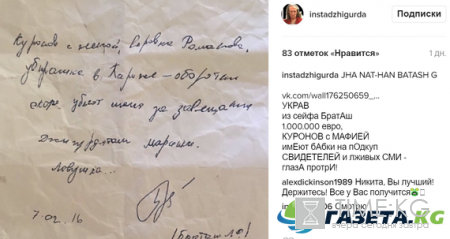 Куронов с женой, воровка Романова,
убираше в Париже - оборотни
скоро убьют меня за завещание
Джигурдатам
Ловушка...
7.02.16
(Браташ Л.Ю)
instadzhigurda
Подписки
83 отметок «Нравится»
1 дн.
instadzhigurda JHA NAT-HAN BATASH G
vk.com/wall176250659_...
УКРАВ
из сейфа БратАш
1.000.000 евро,
КУРОНОВ с МАФИЕЙ
имЕют бАбки на пОдкуп
СВИДЕТЕЛЕЙ и лживых СМИ -
глазА протрИ!
alexdickinson1989 Никита, Вы лучший!
Держитесь! Все у Вас получится
in 06 Смотрю
ГАЗЕТА.KG
TIME.KG
вчера сегодня завтра